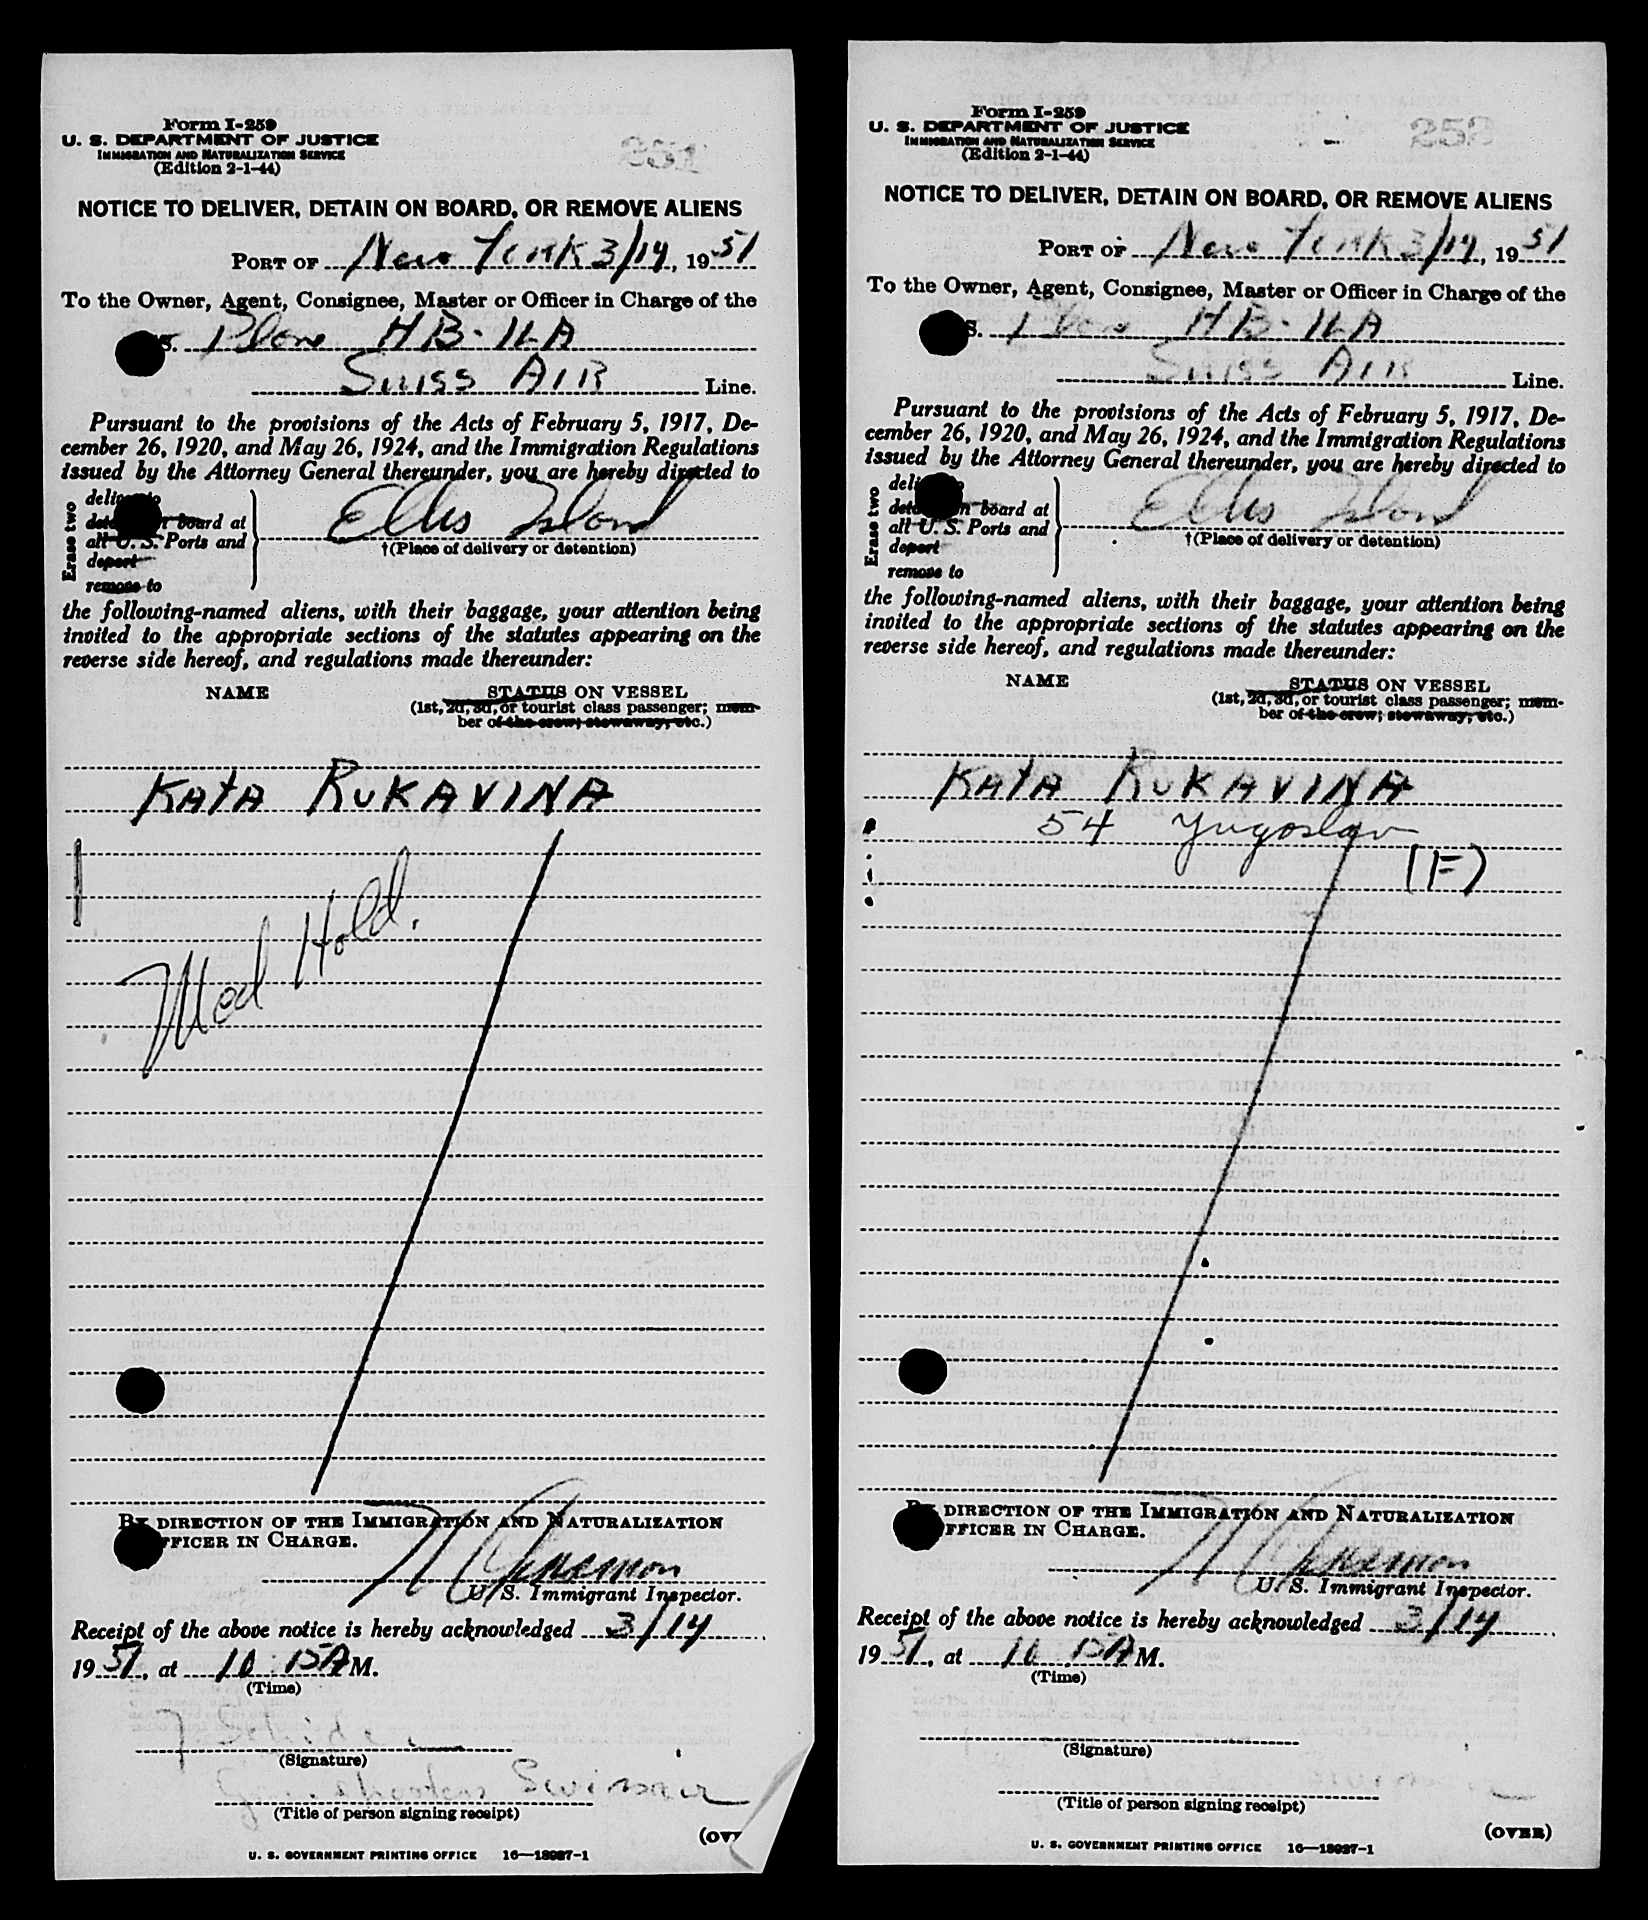 Form I-259
U. S. DEPARTMENT OF JUSTICE
IMMIGRATION AND NATURALIZATION SERVICE
(Edition 2-1-44)
251
NOTICE TO DELIVER, DETAIN ON BOARD, OR REMOVE ALIENS
PORT OF New York 3/14, 1951
To the Owner, Agent, Consignee, Master or Officer in Charge of the
S. Plane HB-ILA
Swiss AIR Line.
Pursuant to the provisions of the Acts of February 5, 1917, De-
cember 26, 1920, and May 26, 1924, and the Immigration Regulations
issued by the Attorney General thereunder, you are hereby directed to
Erase two
deliver to
board at
all U. S. Ports and
deport
remove to
Ellis Island
†(Place of delivery or detention)
the following-named aliens, with their baggage, your attention being
invited to the appropriate sections of the statutes appearing on the
reverse side hereof, and regulations made thereunder:
NAME
STATUS ON VESSEL
(1st, 2d, 3d, or tourist class passenger; mem-
ber of the crew; stowaway, etc.)
KATA RUKAVINA
Med Hold.
BY DIRECTION OF THE IMMIGRATION AND NATURALIZATION
FFICER IN CHARGE.
U. S. Immigrant Inspector.
Receipt of the above notice is hereby acknowledged 3/14
1951, at 10:15 A M.
(Time)
(Signature)
Swissair
(Title of person signing receipt)
(OV
U. S. GOVERNMENT PRINTING OFFICE 16—18987-1
Form I-259
U. S. DEPARTMENT OF JUSTICE
IMMIGRATION AND NATURALIZATION SERVICE
(Edition 2-1-44)
252
NOTICE TO DELIVER, DETAIN ON BOARD, OR REMOVE ALIENS
PORT OF New York 3/14, 1951
To the Owner, Agent, Consignee, Master or Officer in Charge of the
S. Plane HB-ILA
Swiss AIR Line.
Pursuant to the provisions of the Acts of February 5, 1917, De-
cember 26, 1920, and May 26, 1924, and the Immigration Regulations
issued by the Attorney General thereunder, you are hereby directed to
Erase two
on board at
all U. S. Ports and
deport
remove to
Ellis Island
†(Place of delivery or detention)
the following-named aliens, with their baggage, your attention being
invited to the appropriate sections of the statutes appearing on the
reverse side hereof, and regulations made thereunder:
NAME
STATUS ON VESSEL
(1st, 2d, 3d, or tourist class passenger; mem-
ber of the crew; stowaway, etc.)
KATA RUKAVINA
54 Yugoslav
(F)
BY DIRECTION OF THE IMMIGRATION AND NATURALIZATION
FFICER IN CHARGE.
U. S. Immigrant Inspector.
Receipt of the above notice is hereby acknowledged 3/14
1951, at 10 15 A M.
(Time)
(Signature)
(Title of person signing receipt)
(OVER)
U. S. GOVERNMENT PRINTING OFFICE 16—18987-1